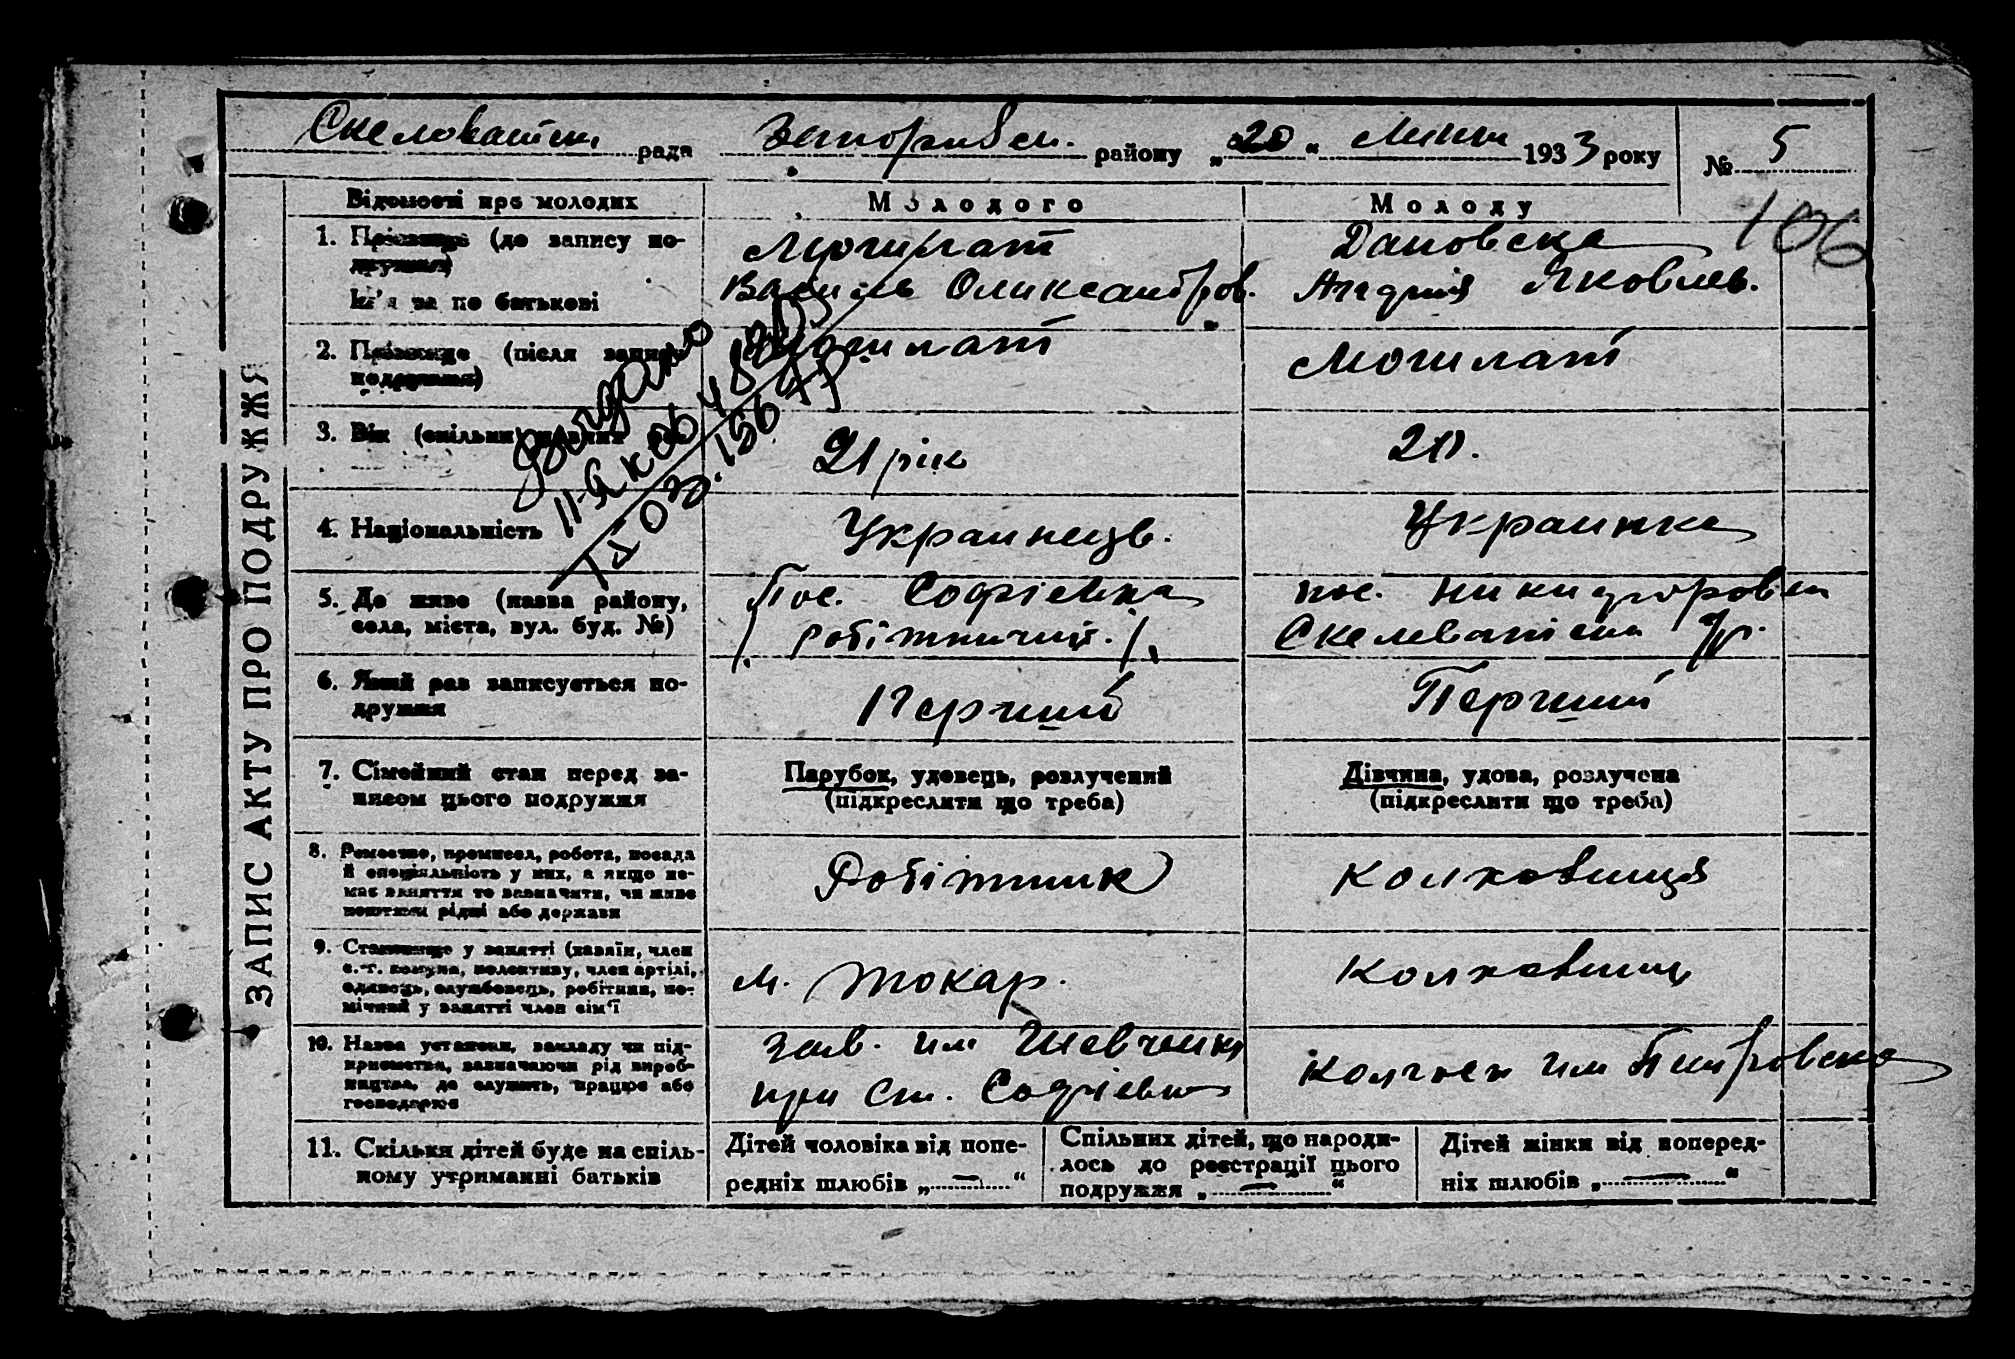 Скеловатськ рада Запорізьк. району „20“ 1933 року № 5
106
ЗАПИС АКТУ ПРО ПОДРУЖЖЯ
Відомості про молодих Молодого Молоду
1. Прізвище (до запису по-
дружжя) Могилат Дановська
Ім'я та по батькові Василь Олександров. Яковлев.
2. Прізвище (після запису
подружжя) Могилат Могилат
3. Вік (скільки повних рок.) 21 рік 20.
Видано
11-Як
156
4. Національність Украинець. Украинка
5. Де живе (назва району,
села, міста, вул. буд. №)
Пос. Софіевка
/ робітничий. /
пос. Никифоровськ
Скелеватськ
6. Який раз записується по-
дружжя Перший Перший
7. Сімейний стан перед за-
писом цього подружжя
Парубок, удовець, розлучений
(підкреслити що треба)
Дівчина, удова, розлучена
(підкреслити що треба)
8. Ремество, промисел, робота, посада
й спеціяльність у них, а якщо не-
має заняття то зазначити, чи живе
коштами рідні або держави
Робітник Колховниця
9. Становище у занятті (хазяїн, член
с.-г. комуна, колективу, член артілі,
одинець, службовець, робітник, по-
мічний у занятті член сім'ї
М. токар. Колховниц
10. Назва установи, закладу чи під-
приємства, зазначаючи рід вироб-
ництва, де служить, працює або
господарює
Зав. им Шевченка
при ст. Софіевка
Колгосп им Петровско
11. Скільки дітей буде на спіль-
ному утриманні батьків
Дітей чоловіка від попе-
редніх шлюбів „—“
Спільних дітей, що народи-
лось до реєстрації цього
подружжя „—“
Дітей жінки від поперед-
ніх шлюбів „—“